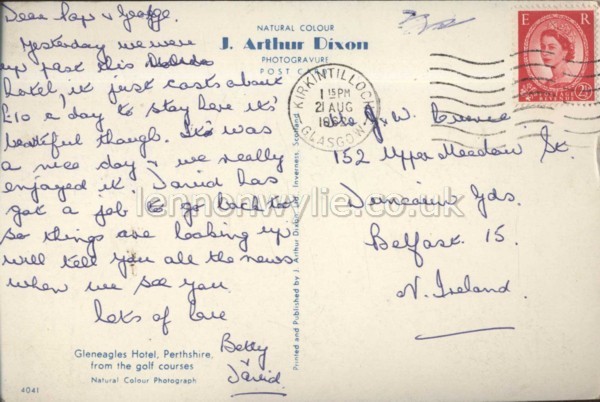 Dear Pop & George.
Yesterday we were
up past this
hotel, it just costs about
£10 a day to stay here it's
beautiful though. It was
a nice day & we really
enjoyed it. David has
got a job to go back to
so things are looking up
will tell you all the news
when we see you
lots of love
Betty
&
David.
Gleneagles Hotel, Perthshire,
from the golf courses
Natural Colour Photograph
4041
NATURAL COLOUR
J. Arthur Dixon
PHOTOGRAVURE
POST CARD
Printed and Published by J. Arthur Dixon Ltd., Inverness, Scotland
KIRKINTILLOCH
1 15 PM
21 AUG
GLASGOW
E R
2½D
J. W.
152 Upper Meadow St.
Duncairn Gds.
Belfast 15.
N. Ireland.
lennonwylie.co.uk